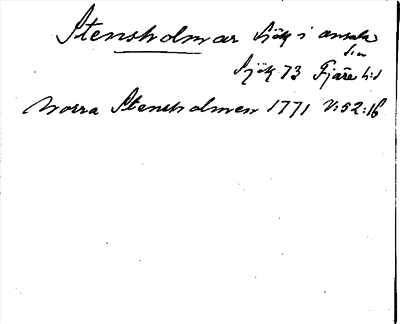 Stensholmar Sjök i ansala
Sjök 73 Fjäre hd
Norra Stensholmen 1771 V:52:16